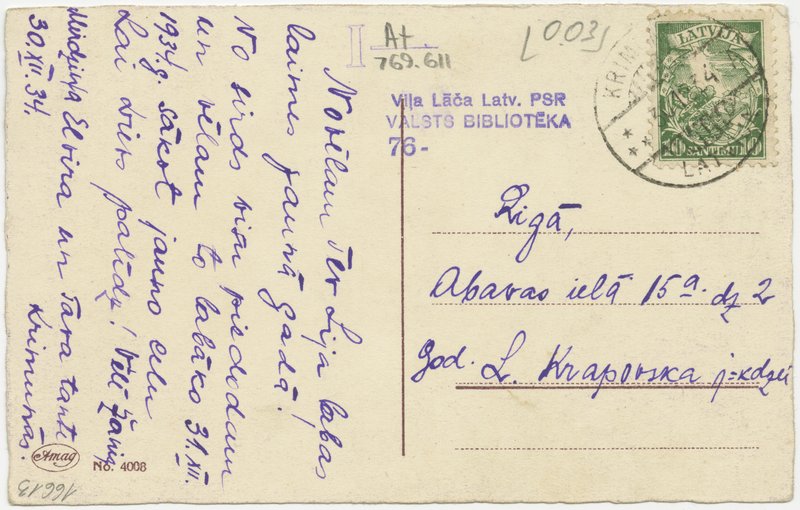 Novēlam Tev Lija labas
laimes jaunā gadā!
No sirds visu piedodam
un vēlam to labāko 31.XII.
1934.g. sākot jauno ceļu
Lai Dievs palīdz! Vēl
Mirdziņa Elvira un Tava tante
30.XII.34. Krimunās.
I
A+
769.611
[0.03]
Viļa Lāča Latv. PSR
VALSTS BIBLIOTĒKA
76-
LATVIJA
10 SANTIMU 10
KRIM
LAT
Rīgā,
Abavas ielā 15a dz 2
God. L. Krapovska j-kdzei
Amag
No. 4008
16613